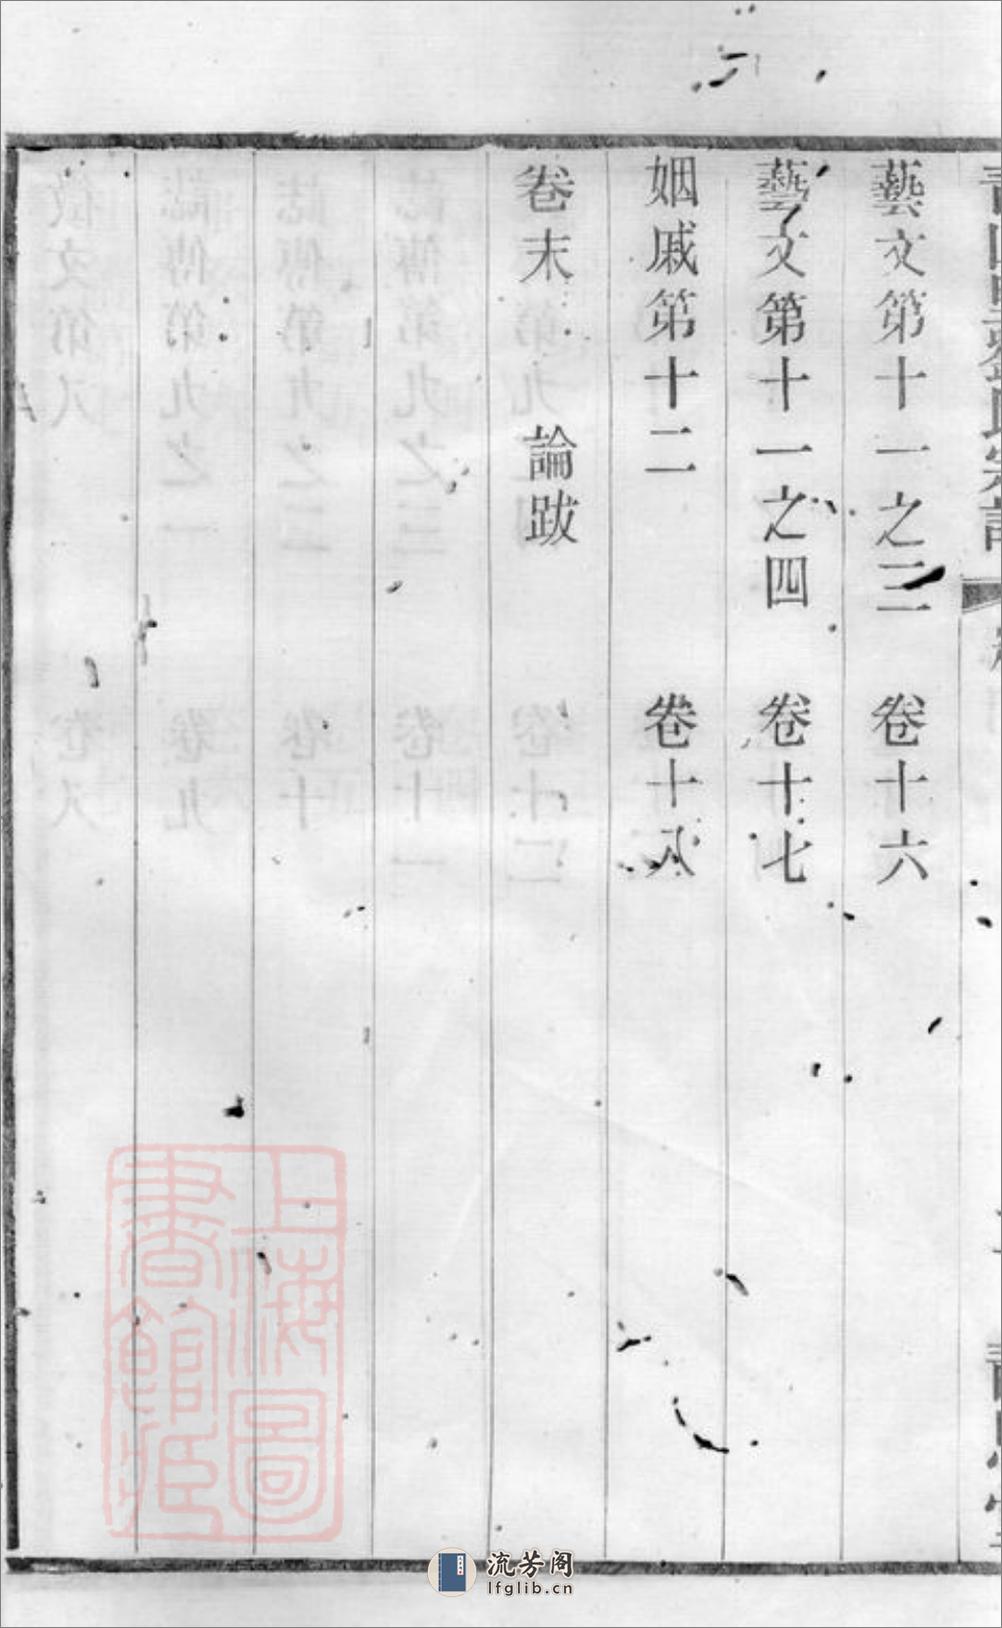 藝文第十一之三 卷十六
藝文第十一之四 卷十七
姻戚第十二 卷十八
卷末 論跋
上海圖書館藏
流芳阁
lfglib.cn